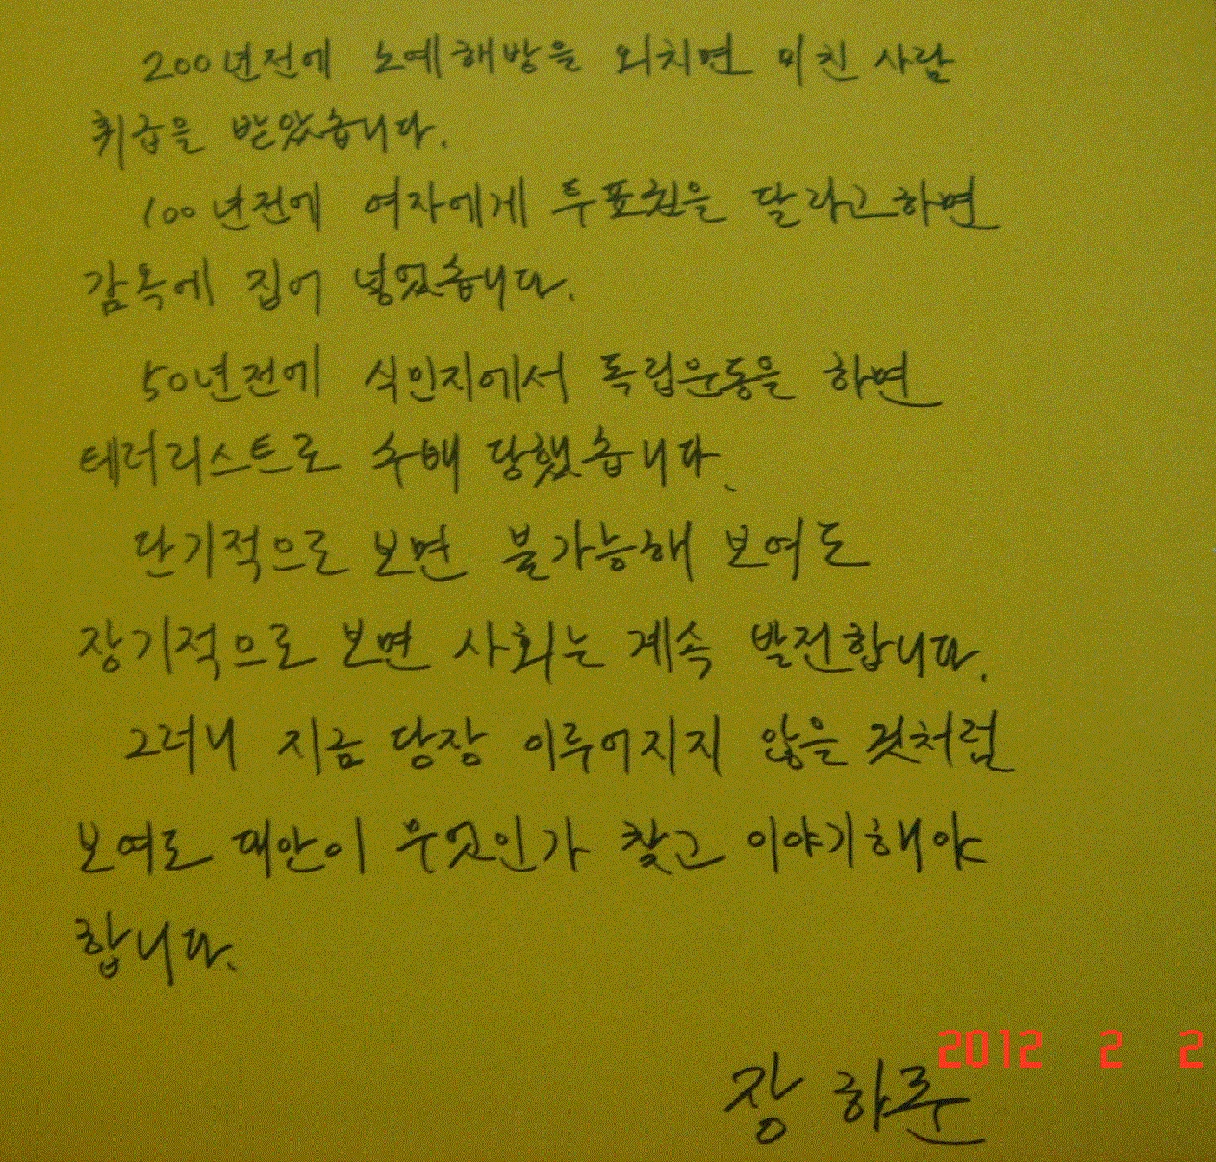 200년전에 노예해방을 외치면 미친 사람
취급을 받았습니다.
100년전에 여자에게 투표권을 달라고하면
감옥에 집어 넣었습니다.
50년전에 식민지에서 독립운동을 하면
테러리스트로 수배 당했습니다.
단기적으로 보면 불가능해 보여도
장기적으로 보면 사회는 계속 발전합니다.
그러니 지금 당장 이루어지지 않을 것처럼
보여도 대안이 무엇인가 찾고 이야기해야
합니다.
2012 2 2
장하준